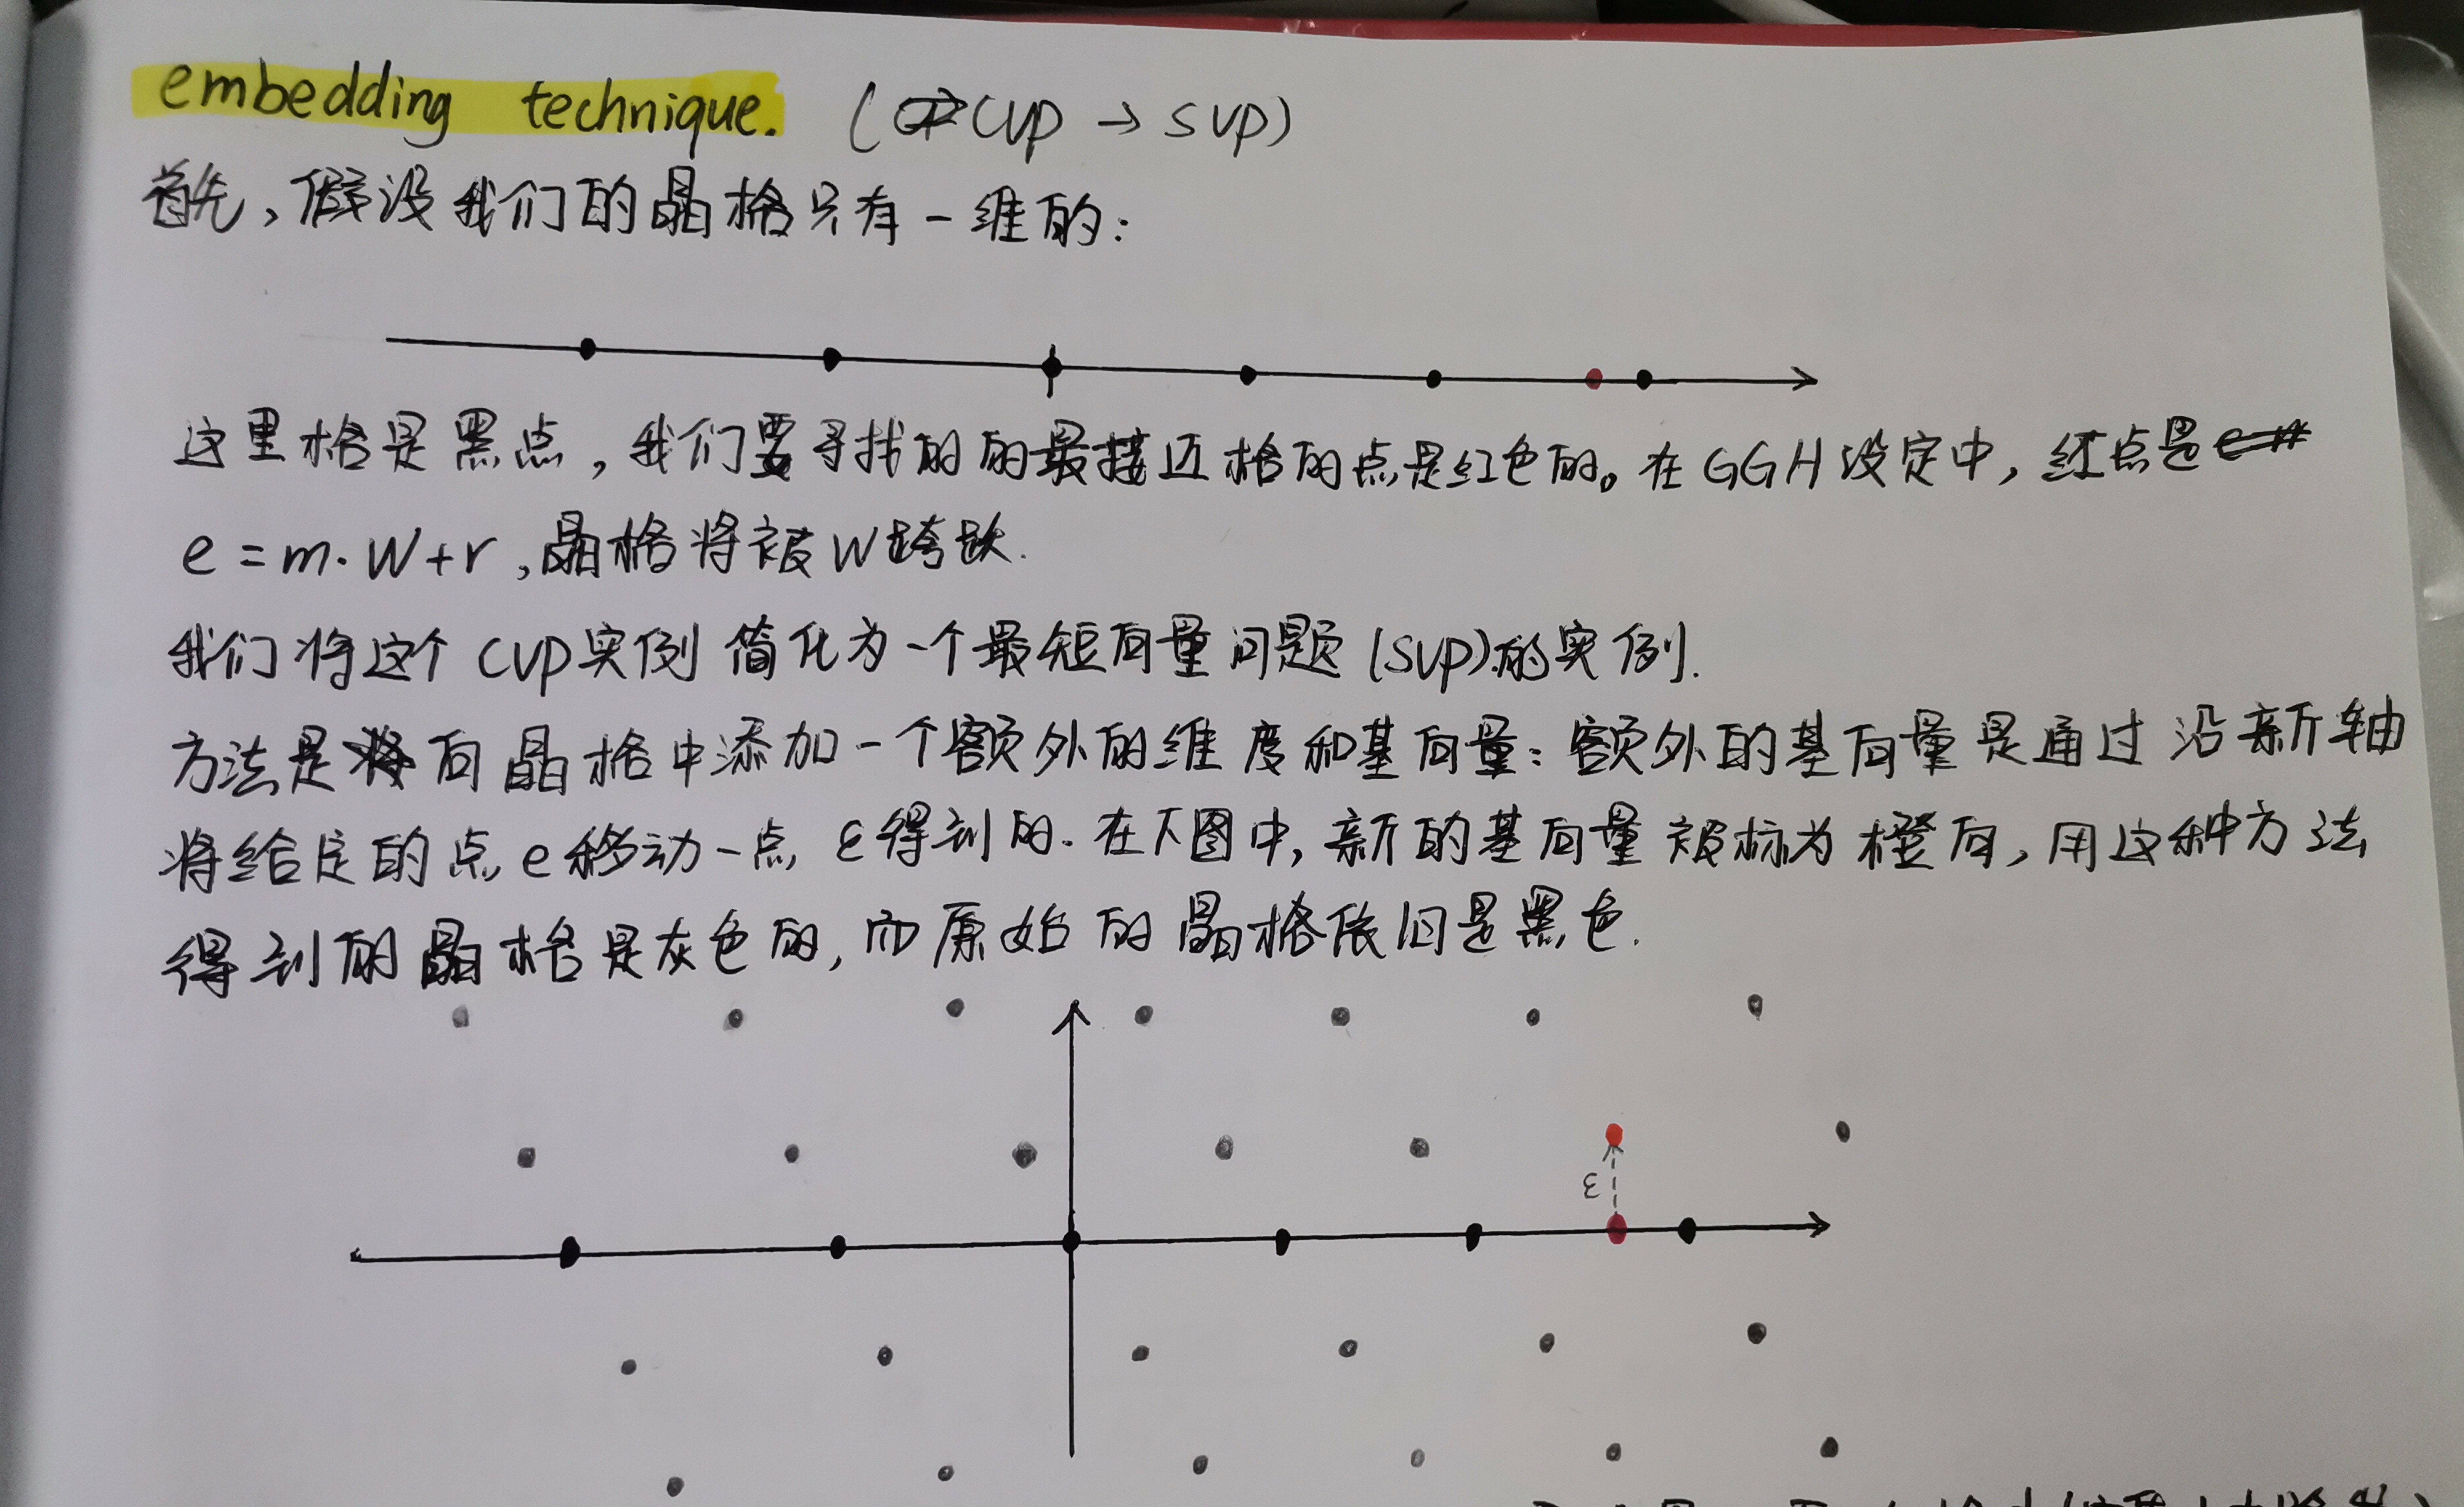 embedding technique. (CVP → SVP)
首先,假设我们的晶格只有一维的:
这里格是黑点,我们要寻找的的最接近格的点是红色的。在GGH设定中,红点是
e=m·W+r,晶格将被W跨越.
我们将这个CVP实例简化为一个最短向量问题(SVP)的实例.
方法是向晶格中添加一个额外的维度和基向量:额外的基向量是通过沿新轴
将给定的点e移动一点ε得到的.在下图中,新的基向量被标为橙向,用这种方法
得到的晶格是灰色的,而原始的晶格依旧是黑色.
ε